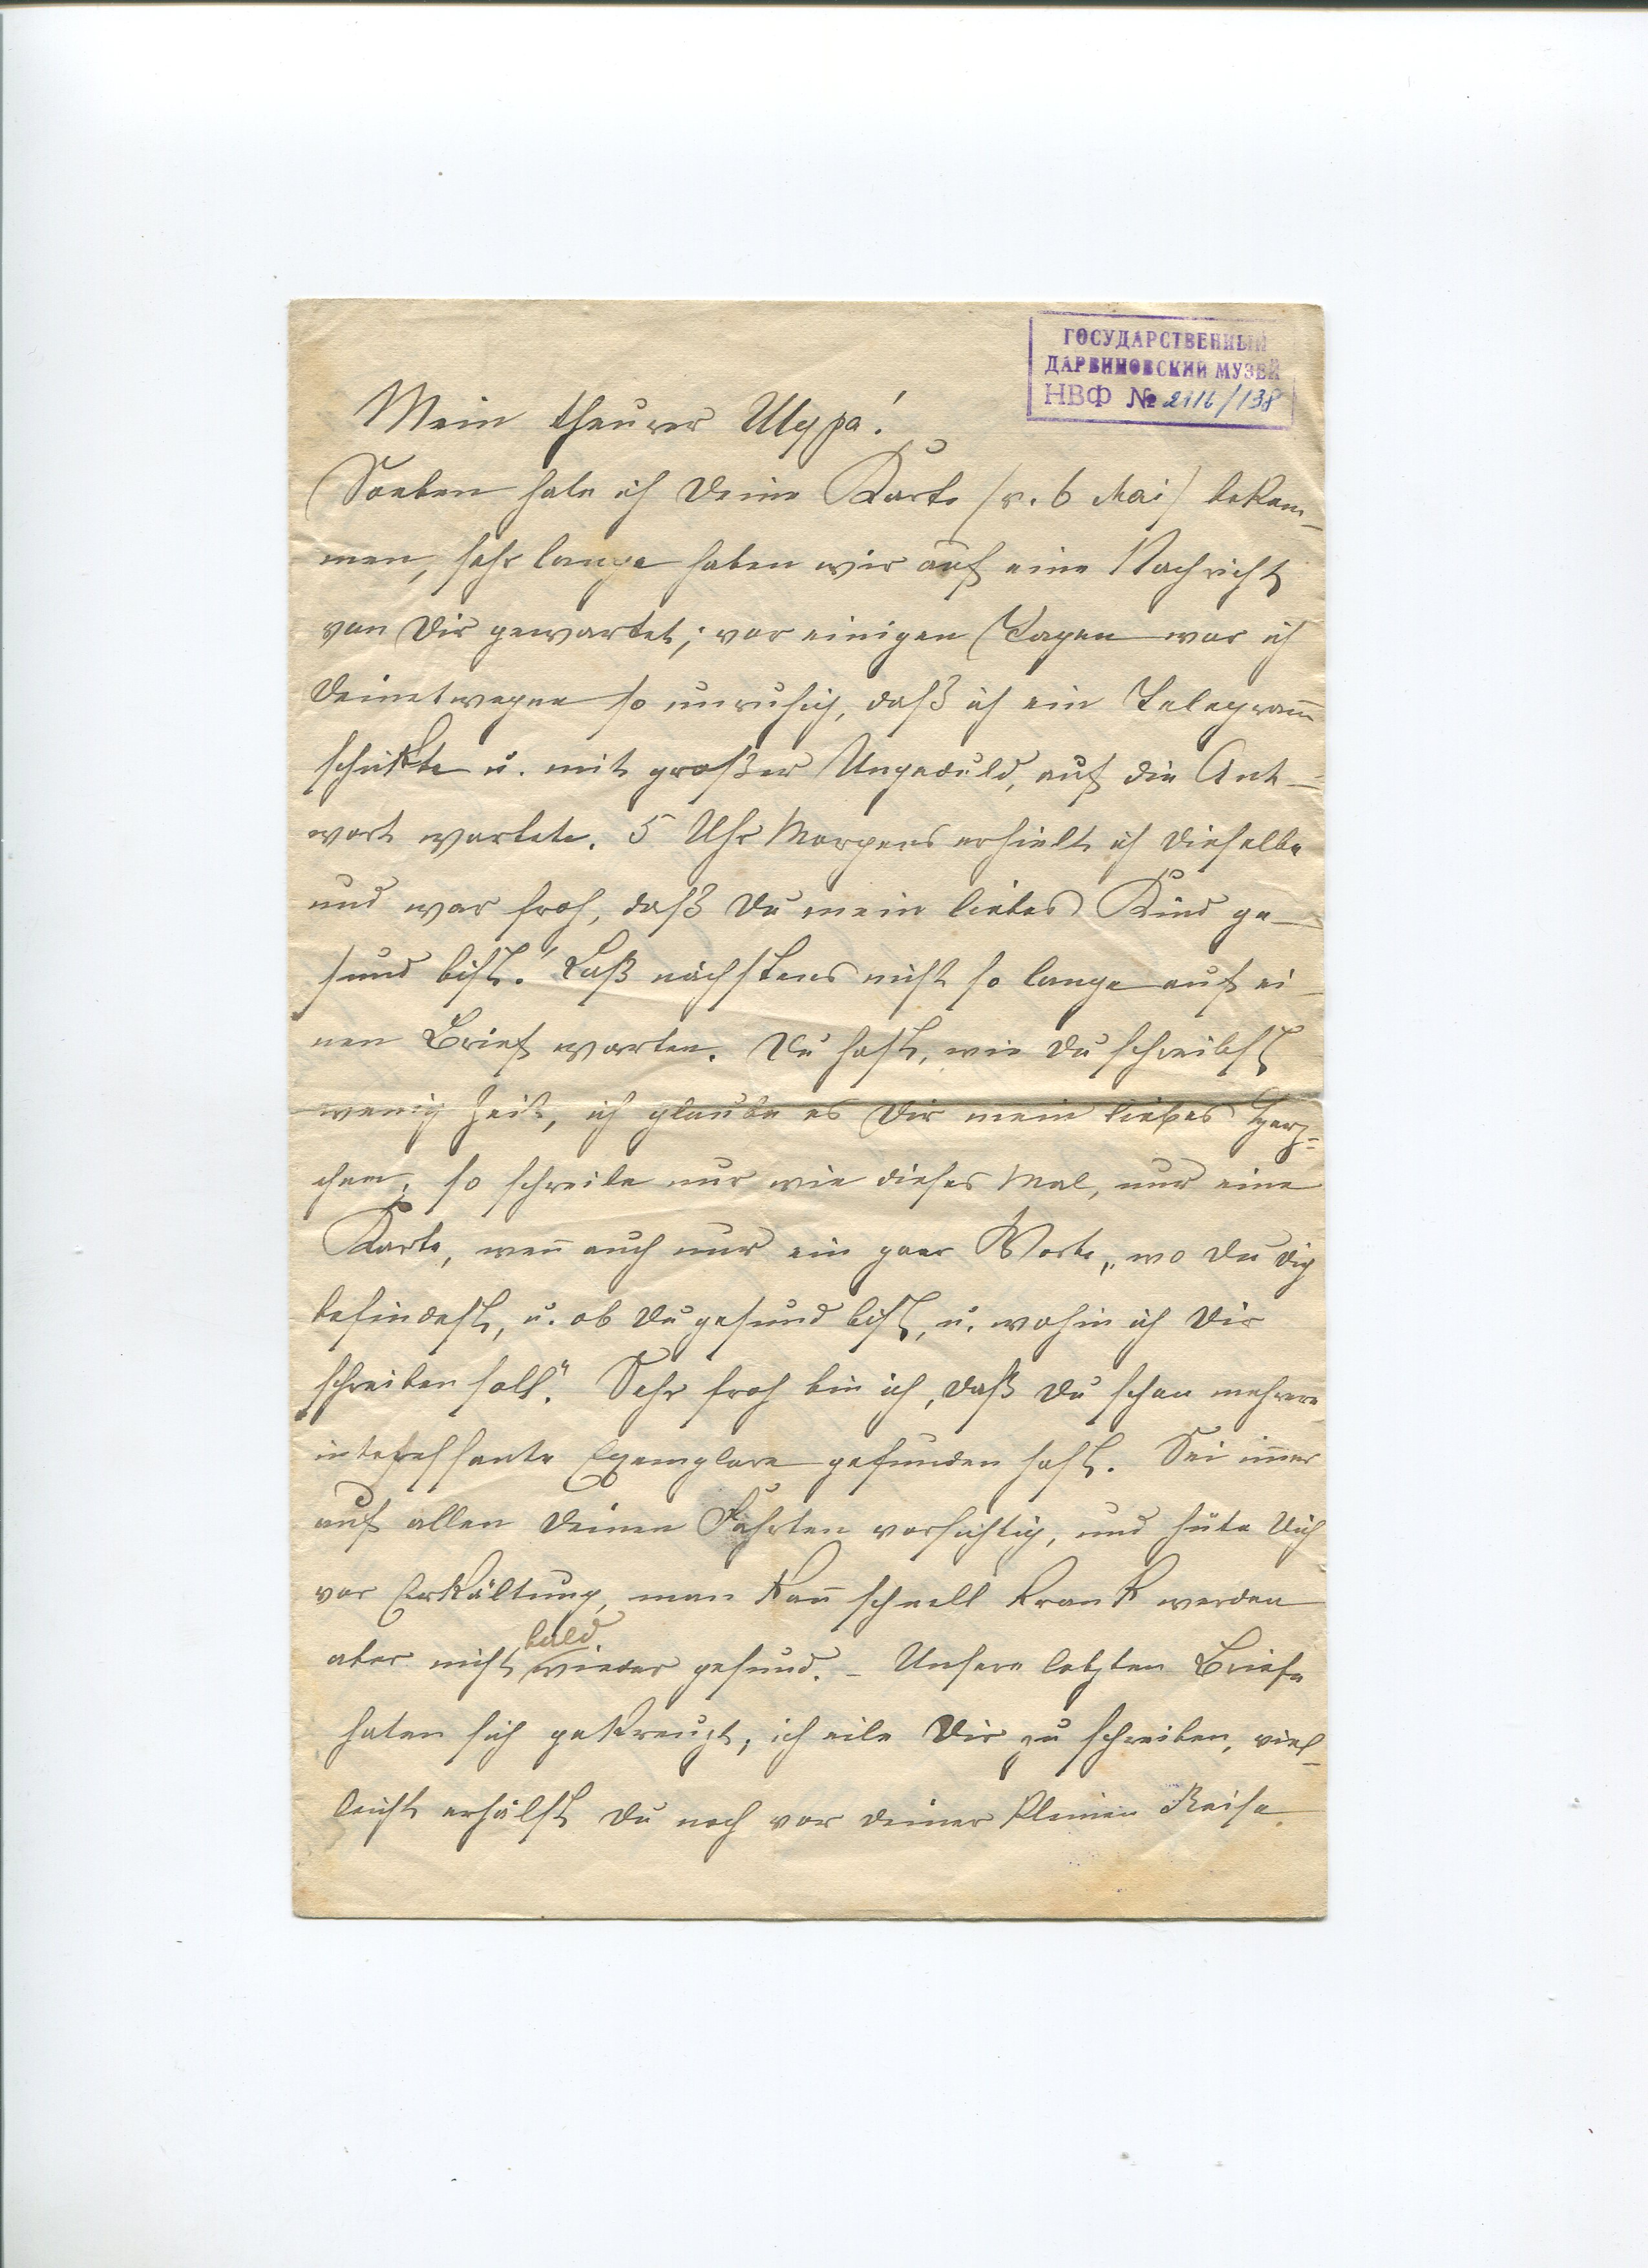 ГОСУДАРСТВЕННЫЙ
ДАРВИНОВСКИЙ МУЗЕЙ
НВФ № 2116/138
Mein theurer Шура!
Soeben habe ich Deine Karte (v. 6 Mai) bekom-
men, sehr lange haben wir auf eine Nachricht
von Dir gewartet; vor einigen Tagen war ich
Deinetwegen so unruhig, daß ich ein Telegram̅
schickte u. mit großer Ungeduld, auf die Ant-
wort wartete. 5 Uhr Morgens erhielt ich dieselbe
und war froh, daß Du mein liebes Kind ge-
sund bist! Laß nächstens nicht so lange auf ei-
nen Brief warten. Du hast, wie Du schreibst
wenig Zeit, ich glaube es Dir mein liebes Herz-
chen, so schreibe nur wie dieses Mal, nur eine
Karte, wen̅ auch nur ein paar Worte, „wo Du Dich
befindest, u. ob Du gesund bist, u. wohin ich Dir
schreiben soll“. Sehr froh bin ich, daß Du schon mehrere
interessante Exemplare gefunden hast. Sei im̅er
auf allen Deinen Fahrten vorsichtig, und hüte Dich
vor Erkältung, man kan̅ schnell krank werden
aber nicht bald wieder gesund. – Unsere letzten Briefe
haben sich gekreuzt, ich eile Dir zu schreiben, viel-
leicht erhälst Du noch vor Deiner kleinen Reise